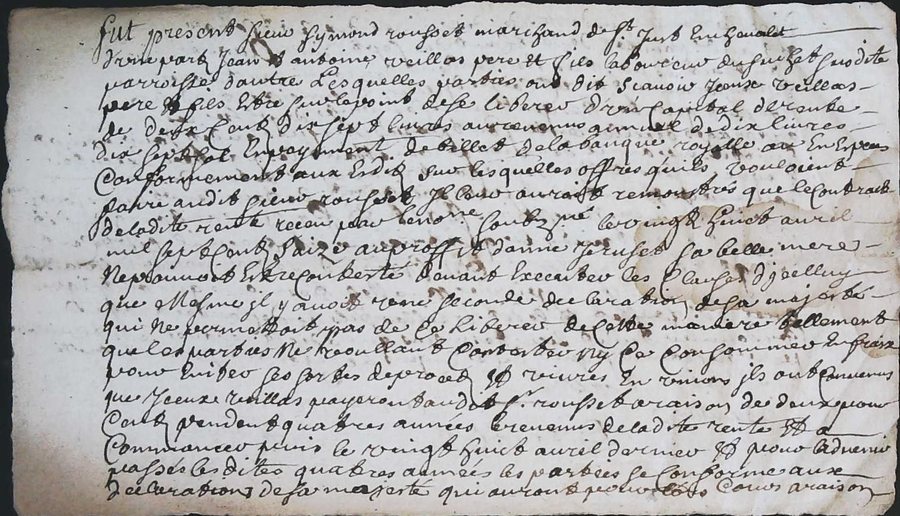 fut present sieur symond rousset marchand de St Just En chevalet
d'une part Jean et antoine veillas pere et fils laboureur du suchat susdite
parroisse d'autre Lesquelles parties ont dit scavoir yceux veillas
pere et fils Estre sur le point de se liberer d'un Capital de rente
de deux cent dix sept livres au revenu annuel de dix livres
dix sept sol En payement de billet de la banque royalle ou En Espece
Conformement aux Edits sur lesquelles offres qu'ils vouloient
faire audit sieur rousset Il leur auroit remontré que le Contrat
de ladite rente receu par le no.re soubz.né le vingt huict avril
mil sept cent saize au proffit danne sa belle mere
Ne pouvoit Estre Contesté devant Executer les Clauses d'ycelluy
que Mesme il y avoit une seconde declaration de sa majesté
qui Ne permettoit pas de se Liberer de cette maniere tellement
que les parties Ne voullant Contester Ny se Consommer En fraix
pour Eviter ses sortes de proces et vivre En union ils ont Convenus
que yceux veillas payeront audit Sr. rousset a raison de deux pour
Cent pendent quatres années le revenus de ladite rente et a
Commancer puis le vingt huict avril dernier et pour ladvenir
passés lesdites quatres années les parties se Conforme aux
declarations de sa majesté qui auront pour lors Cours a raison